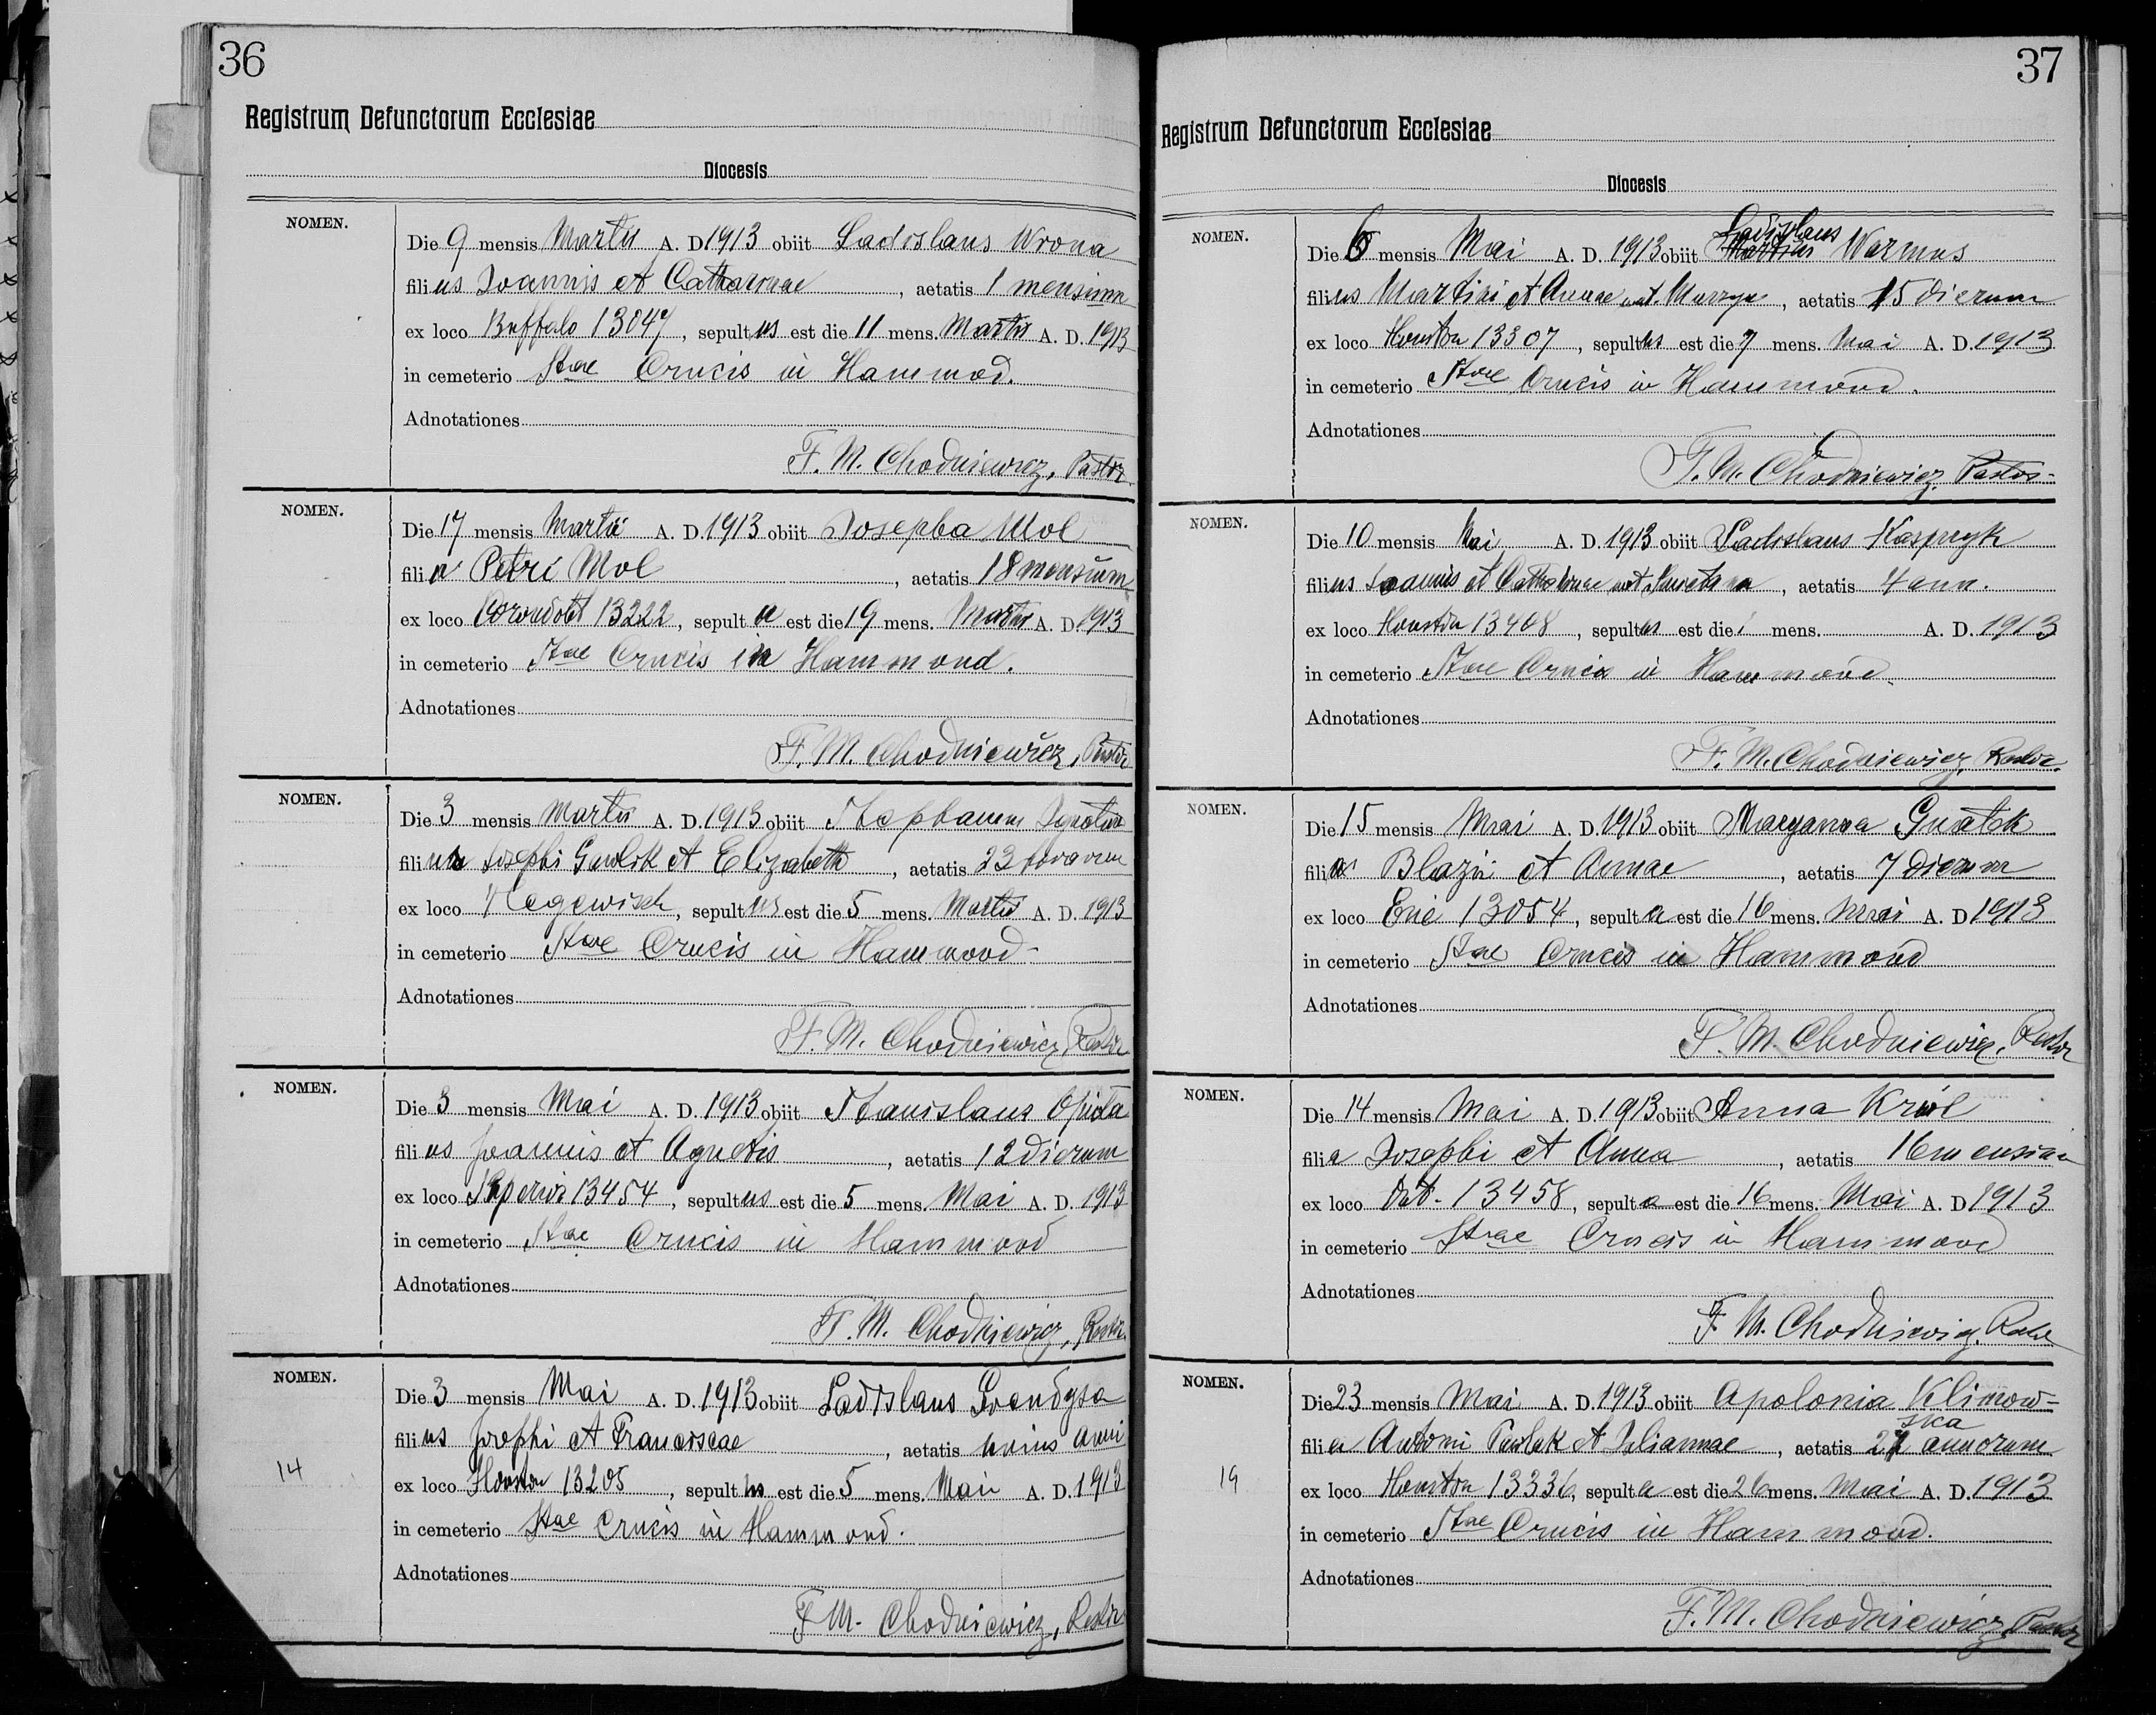 36
Registrum Defunctorum Ecclesiae
Diocesis
NOMEN.
Die 9 mensis Martii A. D 1913 obiit Ladislaus Wrona
filius Joannis et Catharinae, aetatis 1 mensium
ex loco Buffalo 13047, sepultus est die 11 mens. Martii A. D. 1913
in cemeterio Stae Crucis in Hammod.
Adnotationes
F. M. Chodniewicz, Pastor
NOMEN.
Die 17 mensis Martii A. D. 1913 obiit Josepha Mol
filia Petri Mol, aetatis 18 mensium
ex loco 13222, sepulta est die 19 mens. Martii A. D. 1913
in cemeterio Stae Crucis in Hammond.
Adnotationes
F. M. Chodniewicz, Pastor
NOMEN.
Die 3 mensis Martii A. D. 1913 obiit
filius Josephi Gawlik et Elizabeth, aetatis 23
ex loco Hegewisch, sepultus est die 5 mens. Martii A. D. 1913
in cemeterio Stae Crucis in Hammond
Adnotationes
F. M. Chodniewicz, Pastor
NOMEN.
Die 3 mensis Mai A. D. 1913 obiit Stanislaus Opiola
filius Joannis et Agnetis, aetatis 12 dierum
ex loco Superior 13454, sepultus est die 5 mens. Mai A. D. 1913
in cemeterio Stae Crucis in Hammond
Adnotationes
F. M. Chodniewicz, Rector
NOMEN.
Die 3 mensis Mai A. D. 1913 obiit Ladislaus
filius Josephi et Franciscae, aetatis unius anni
14
ex loco Houston 13205, sepultus est die 5 mens. Mai A. D. 1913
in cemeterio Stae Crucis in Hammond.
Adnotationes
F M. Chodniewicz, Rector
37
Registrum Defunctorum Ecclesiae
Diocesis
NOMEN.
Ladislaus
Die 6 mensis Mai A. D. 1913 obiit Martinus Warmus
filius Martini et Annae nat., aetatis 15 dierum
ex loco Houston 13307, sepultus est die 7 mens. Mai A. D. 1913
in cemeterio Stae Crucis in Hammond.
Adnotationes
F. M. Chodniewicz, Pastor
NOMEN.
Die 10 mensis Mai A. D. 1913 obiit Ladislaus Kasprzyk
filius Joannis et Catharinae nat, aetatis 4 ann.
ex loco Houston 13408, sepultus est die mens. A. D. 1913
in cemeterio Stae Crucis in Hammond.
Adnotationes
F. M. Chodniewicz, Rector.
NOMEN.
Die 15 mensis Mai A. D. 1913 obiit Maryanna Gnatek
filia Blazii et Annae, aetatis 7 dierum
ex loco Erie 13054, sepulta est die 16 mens. Mai A. D 1913
in cemeterio Stae Crucis in Hammond
Adnotationes
F. M. Chodniewicz, Rector
NOMEN.
Die 14 mensis Mai A. D. 1913 obiit Anna Król
filia Josephi et Anna, aetatis 16 mensium
ex loco 13458, sepulta est die 16 mens. Mai A. D 1913
in cemeterio Stae Crucis in Hammond
Adnotationes
F. M. Chodniewicz, Rector
NOMEN.
Die 23 mensis Mai A. D. 1913 obiit Apolonia Klimow-
ska
filia Antoni Pawlak et Juliannae, aetatis annorum
19
ex loco Houston 13336, sepulta est die 26 mens. Mai A. D. 1913
in cemeterio Stae Crucis in Hammond.
Adnotationes
F. M. Chodniewicz, Pastor